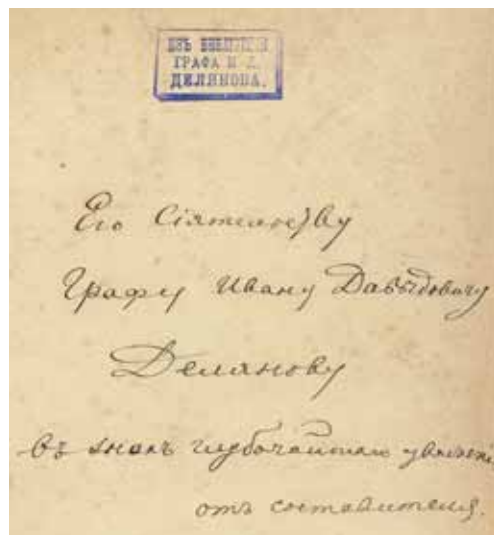 ИЗЪ БИБЛІОТЕКИ
ГРАФА И. Д.
ДЕЛЯНОВА.
Его Сіятельству
Графу Ивану Давыдовичу
Делянову
въ знакъ глубочайшаго уваженія
отъ составителя.